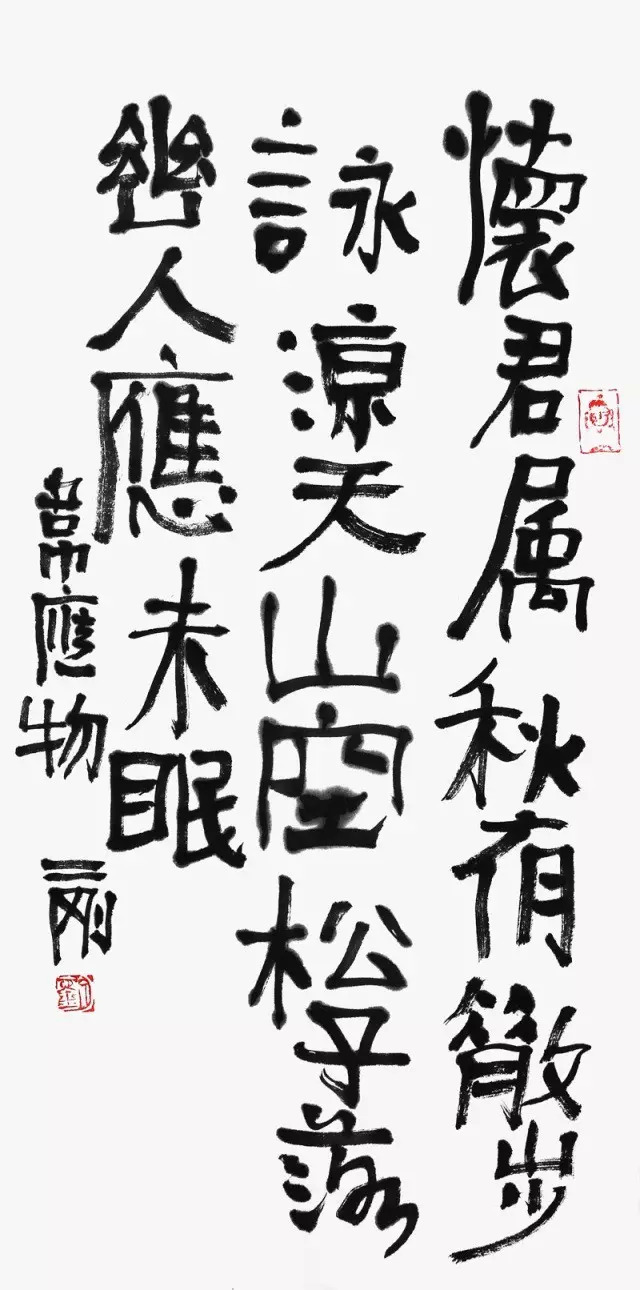 懷君属秋夜散步
詠涼天山空松子落
幽人應未眠
韋應物 二刚